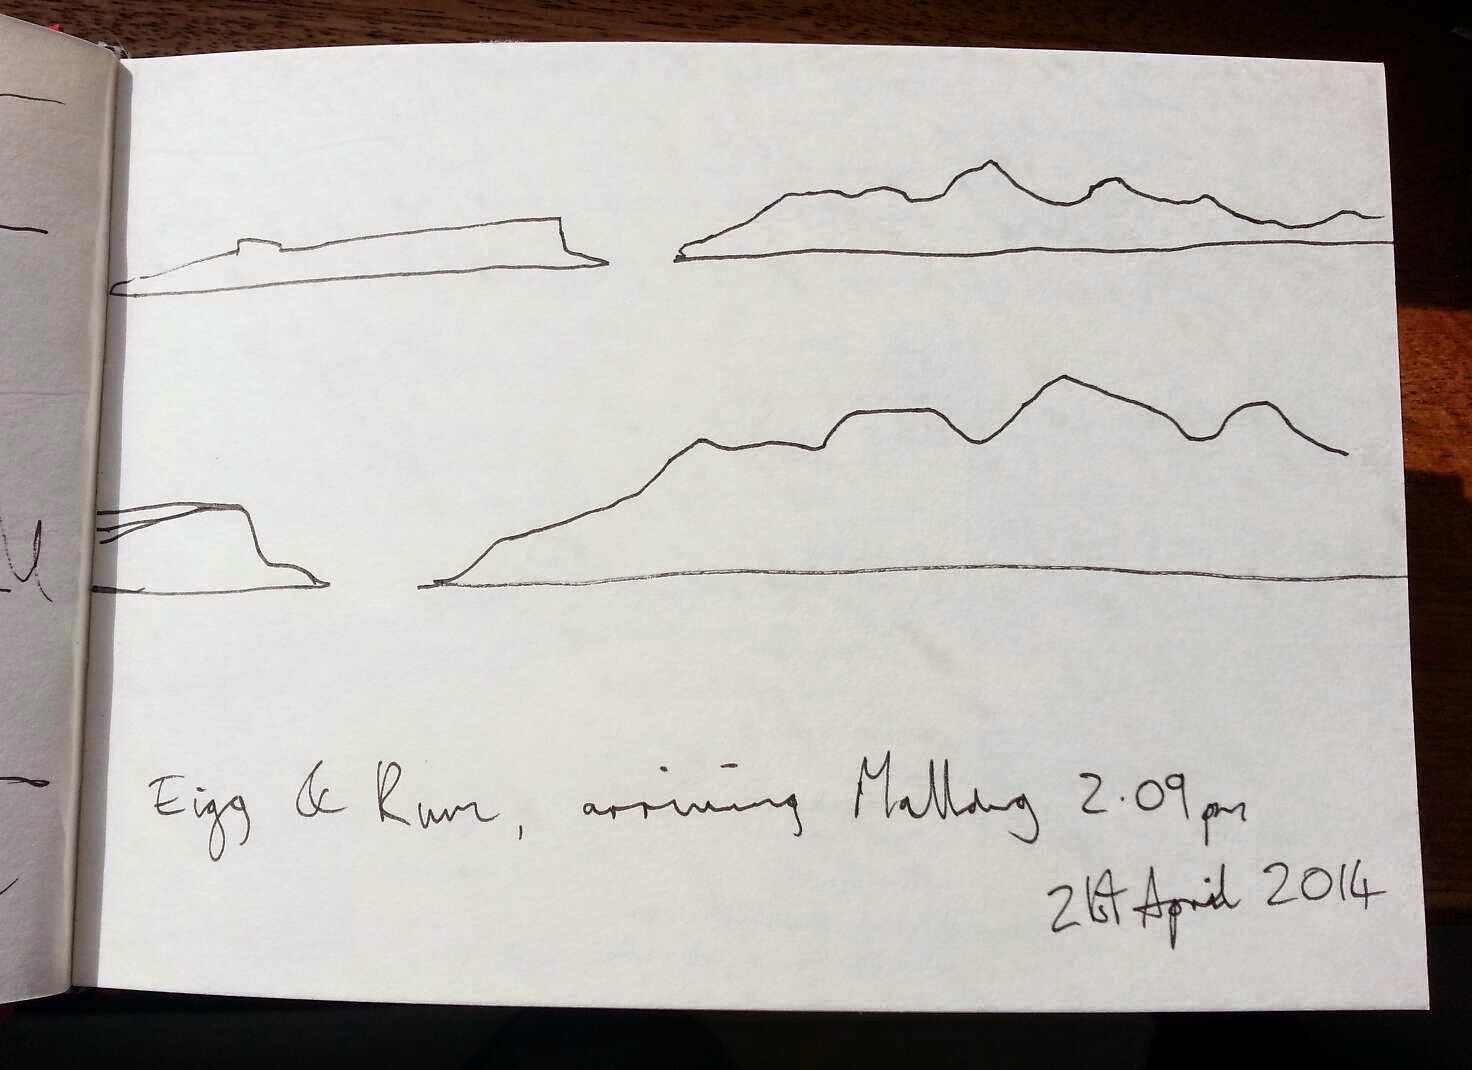 Eigg & Rum, arriving Mallaig 2.09pm
21st April 2014